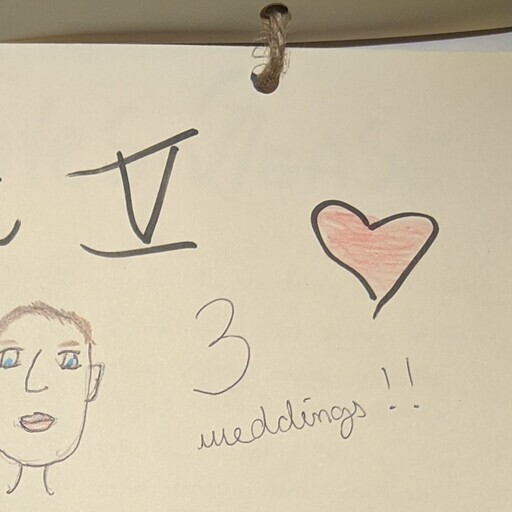 V
3
weddings!!